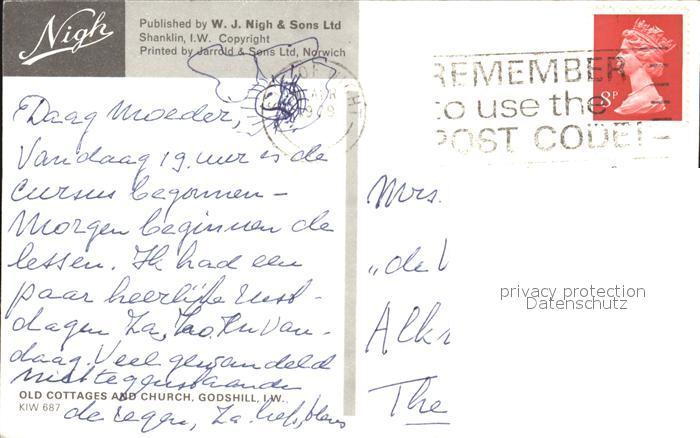 Nigh
Published by W. J. Nigh & Sons Ltd
Shanklin, I.W. Copyright
Printed by Jarrold & Sons Ltd, Norwich
REMEMBER
to use the
POST CODE!
8P
Daag Moeder,
Vandaag 19. uur is de
cursus begonnen –
Morgen beginnen de
lessen. Ik had een
paar heerlijke rust-
dagen Za, Zo. En van-
daag. Veel gewandeld
niettegenstaande
de regen, Za. liefs,
OLD COTTAGES AND CHURCH, GODSHILL, I.W.
KIW 687
Mrs.
„de
Alk
The
privacy protection
Datenschutz